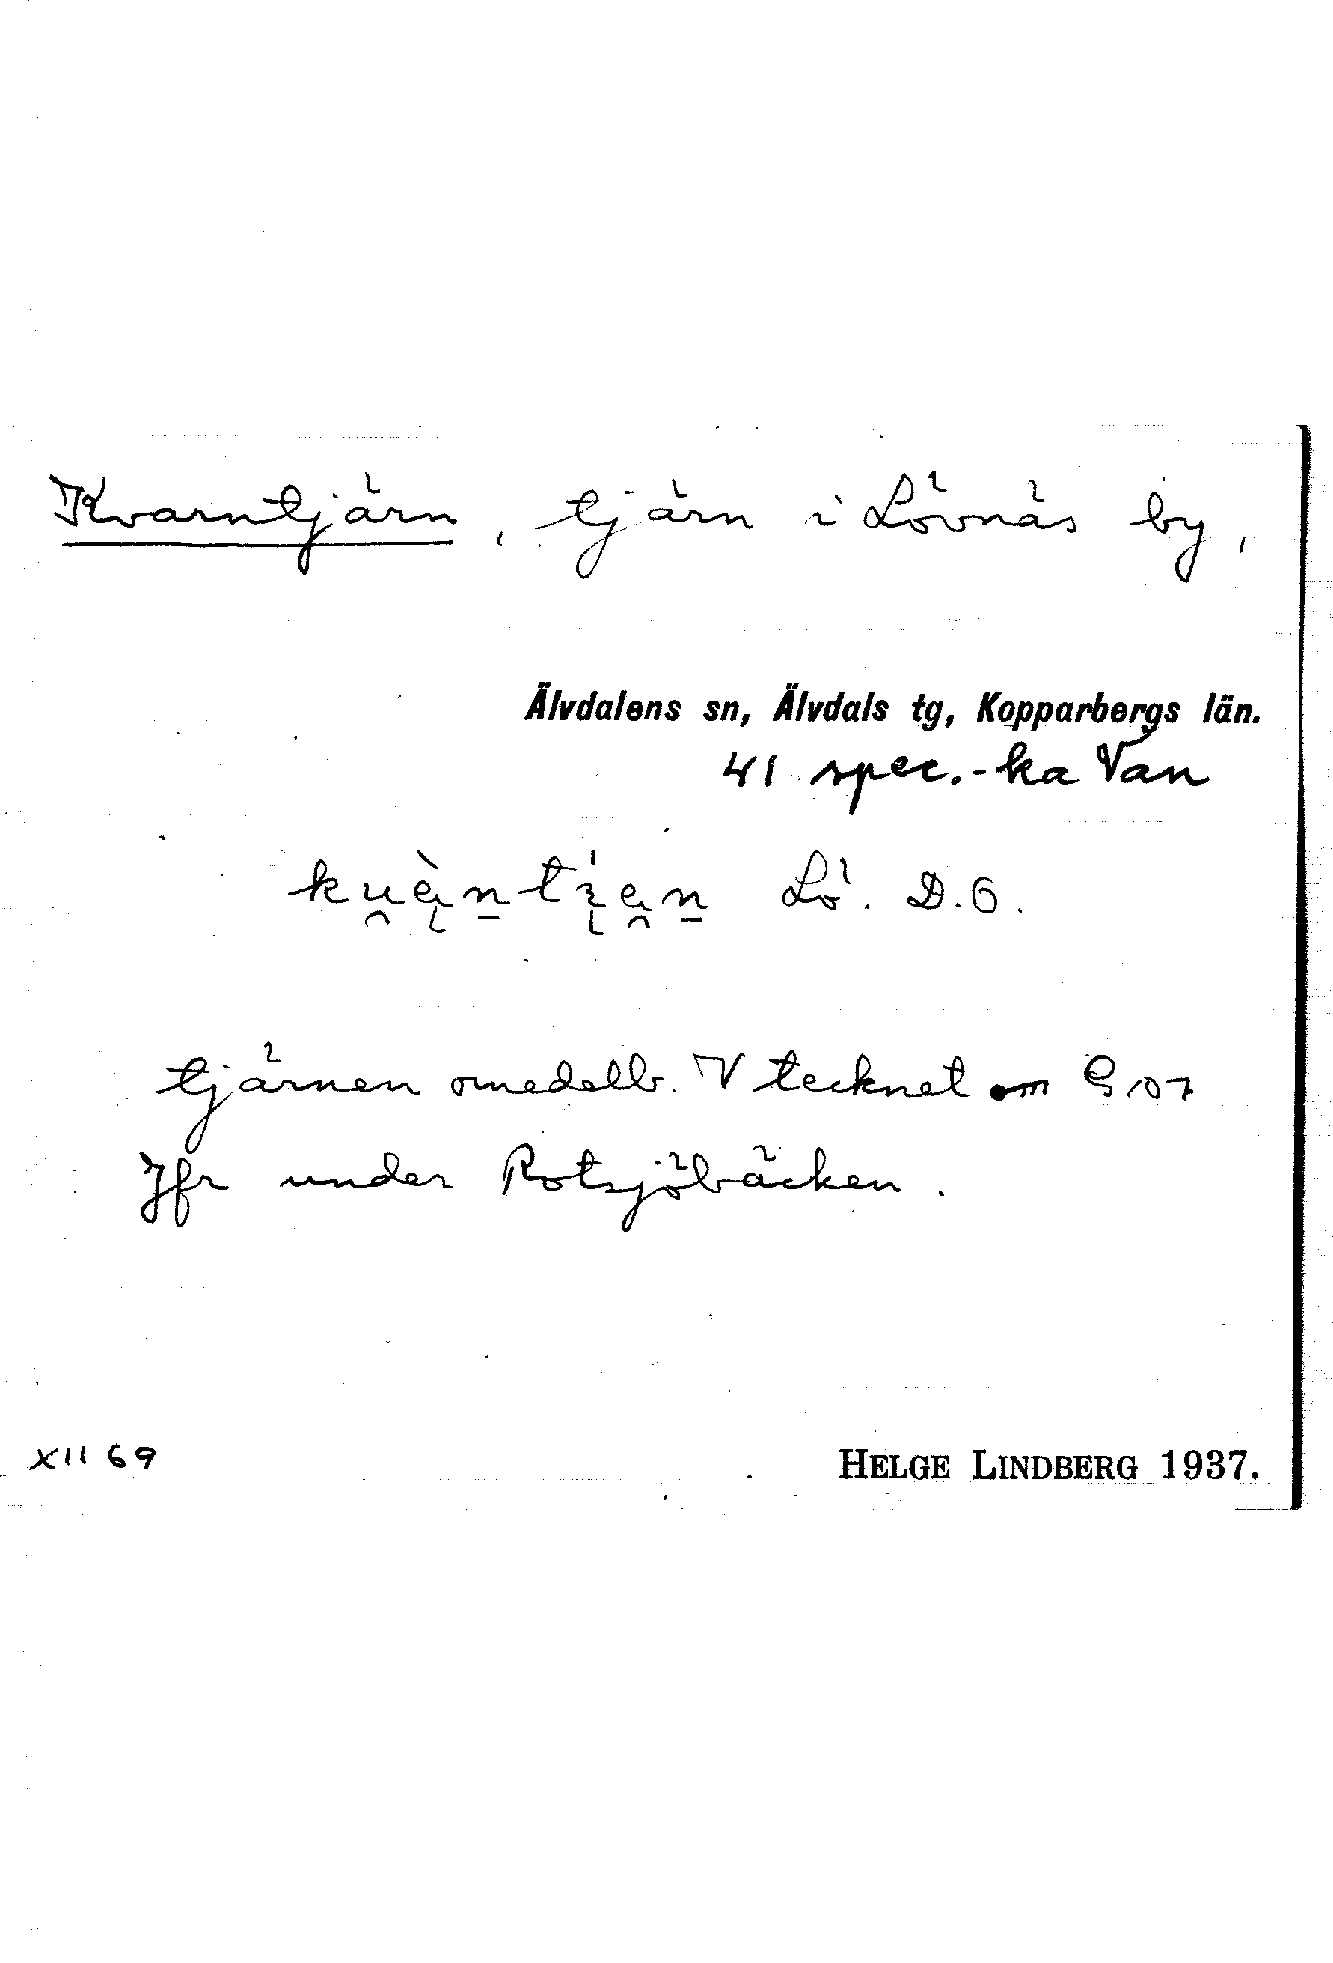 Kvarntjärn, tjärn i Lövnäs by,
Älvdalens sn, Älvdals tg, Kopparbergs län.
41 spec.-ka Van
Lö. D.6.
tjärnen omedelb. V tecknet om 107
Jfr under Rotsjöbäcken.
XII 69
HELGE LINDBERG 1937.